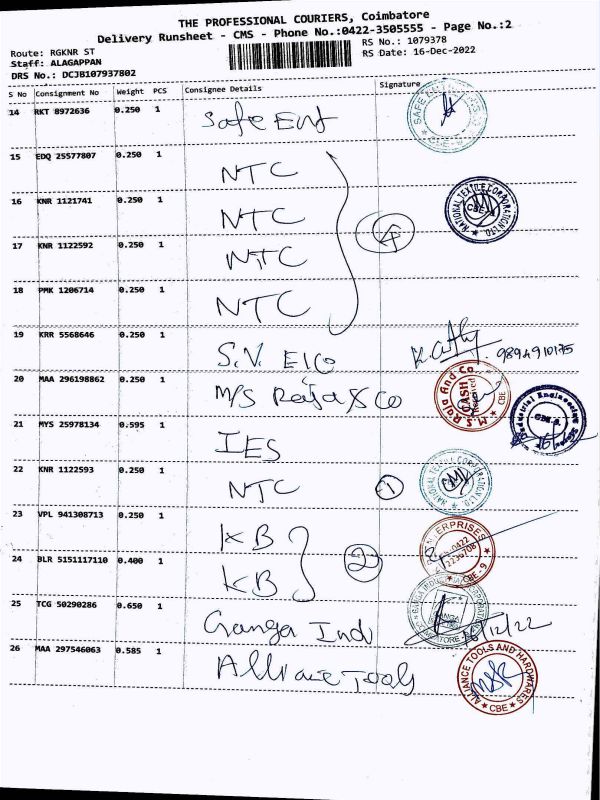 THE PROFESSIONAL COURIERS, Coimbatore
Delivery Runsheet - CMS - Phone No.:0422-3505555 - Page No.:2
Route: RGKNR ST
RS No.: 1079378
Staff: ALAGAPPAN
RS Date: 16-Dec-2022
DRS No.: DCJB107937802
S No Consignment No Weight PCS Consignee Details Signature
14 RKT 8972636 0.250 1 Safe Ent
15 EDQ 25577807 0.250 1 NTC
16 KNR 1121741 0.250 1 NTC
NATIONAL TEXTILE CORPORATION LTD.
CBE
17 KNR 1122592 0.250 1 NTC
4
18 PMK 1206714 0.250 1 NTC
19 KRR 5568646 0.250 1 S.V. Elco
9894910175
20 MAA 296198862 0.250 1 M/S Raja & Co
M.S. Raja And Co
CASH
CBE
21 MYS 25978134 0.595 1 IES
Industrial Engineering
22 KNR 1122593 0.250 1 NTC 1
NATIONAL TEXTILE CORPORATION LTD.
23 VPL 941308713 0.250 1 KB
ENTERPRISES
2
24 BLR 5151117110 0.400 1 KB
CBE - 9
25 TCG 50290286 0.650 1 Ganga Ind 16/12/22
26 MAA 297546063 0.585 1 Alliance Tools
ALLIANCE TOOLS AND HARDWARES
CBE